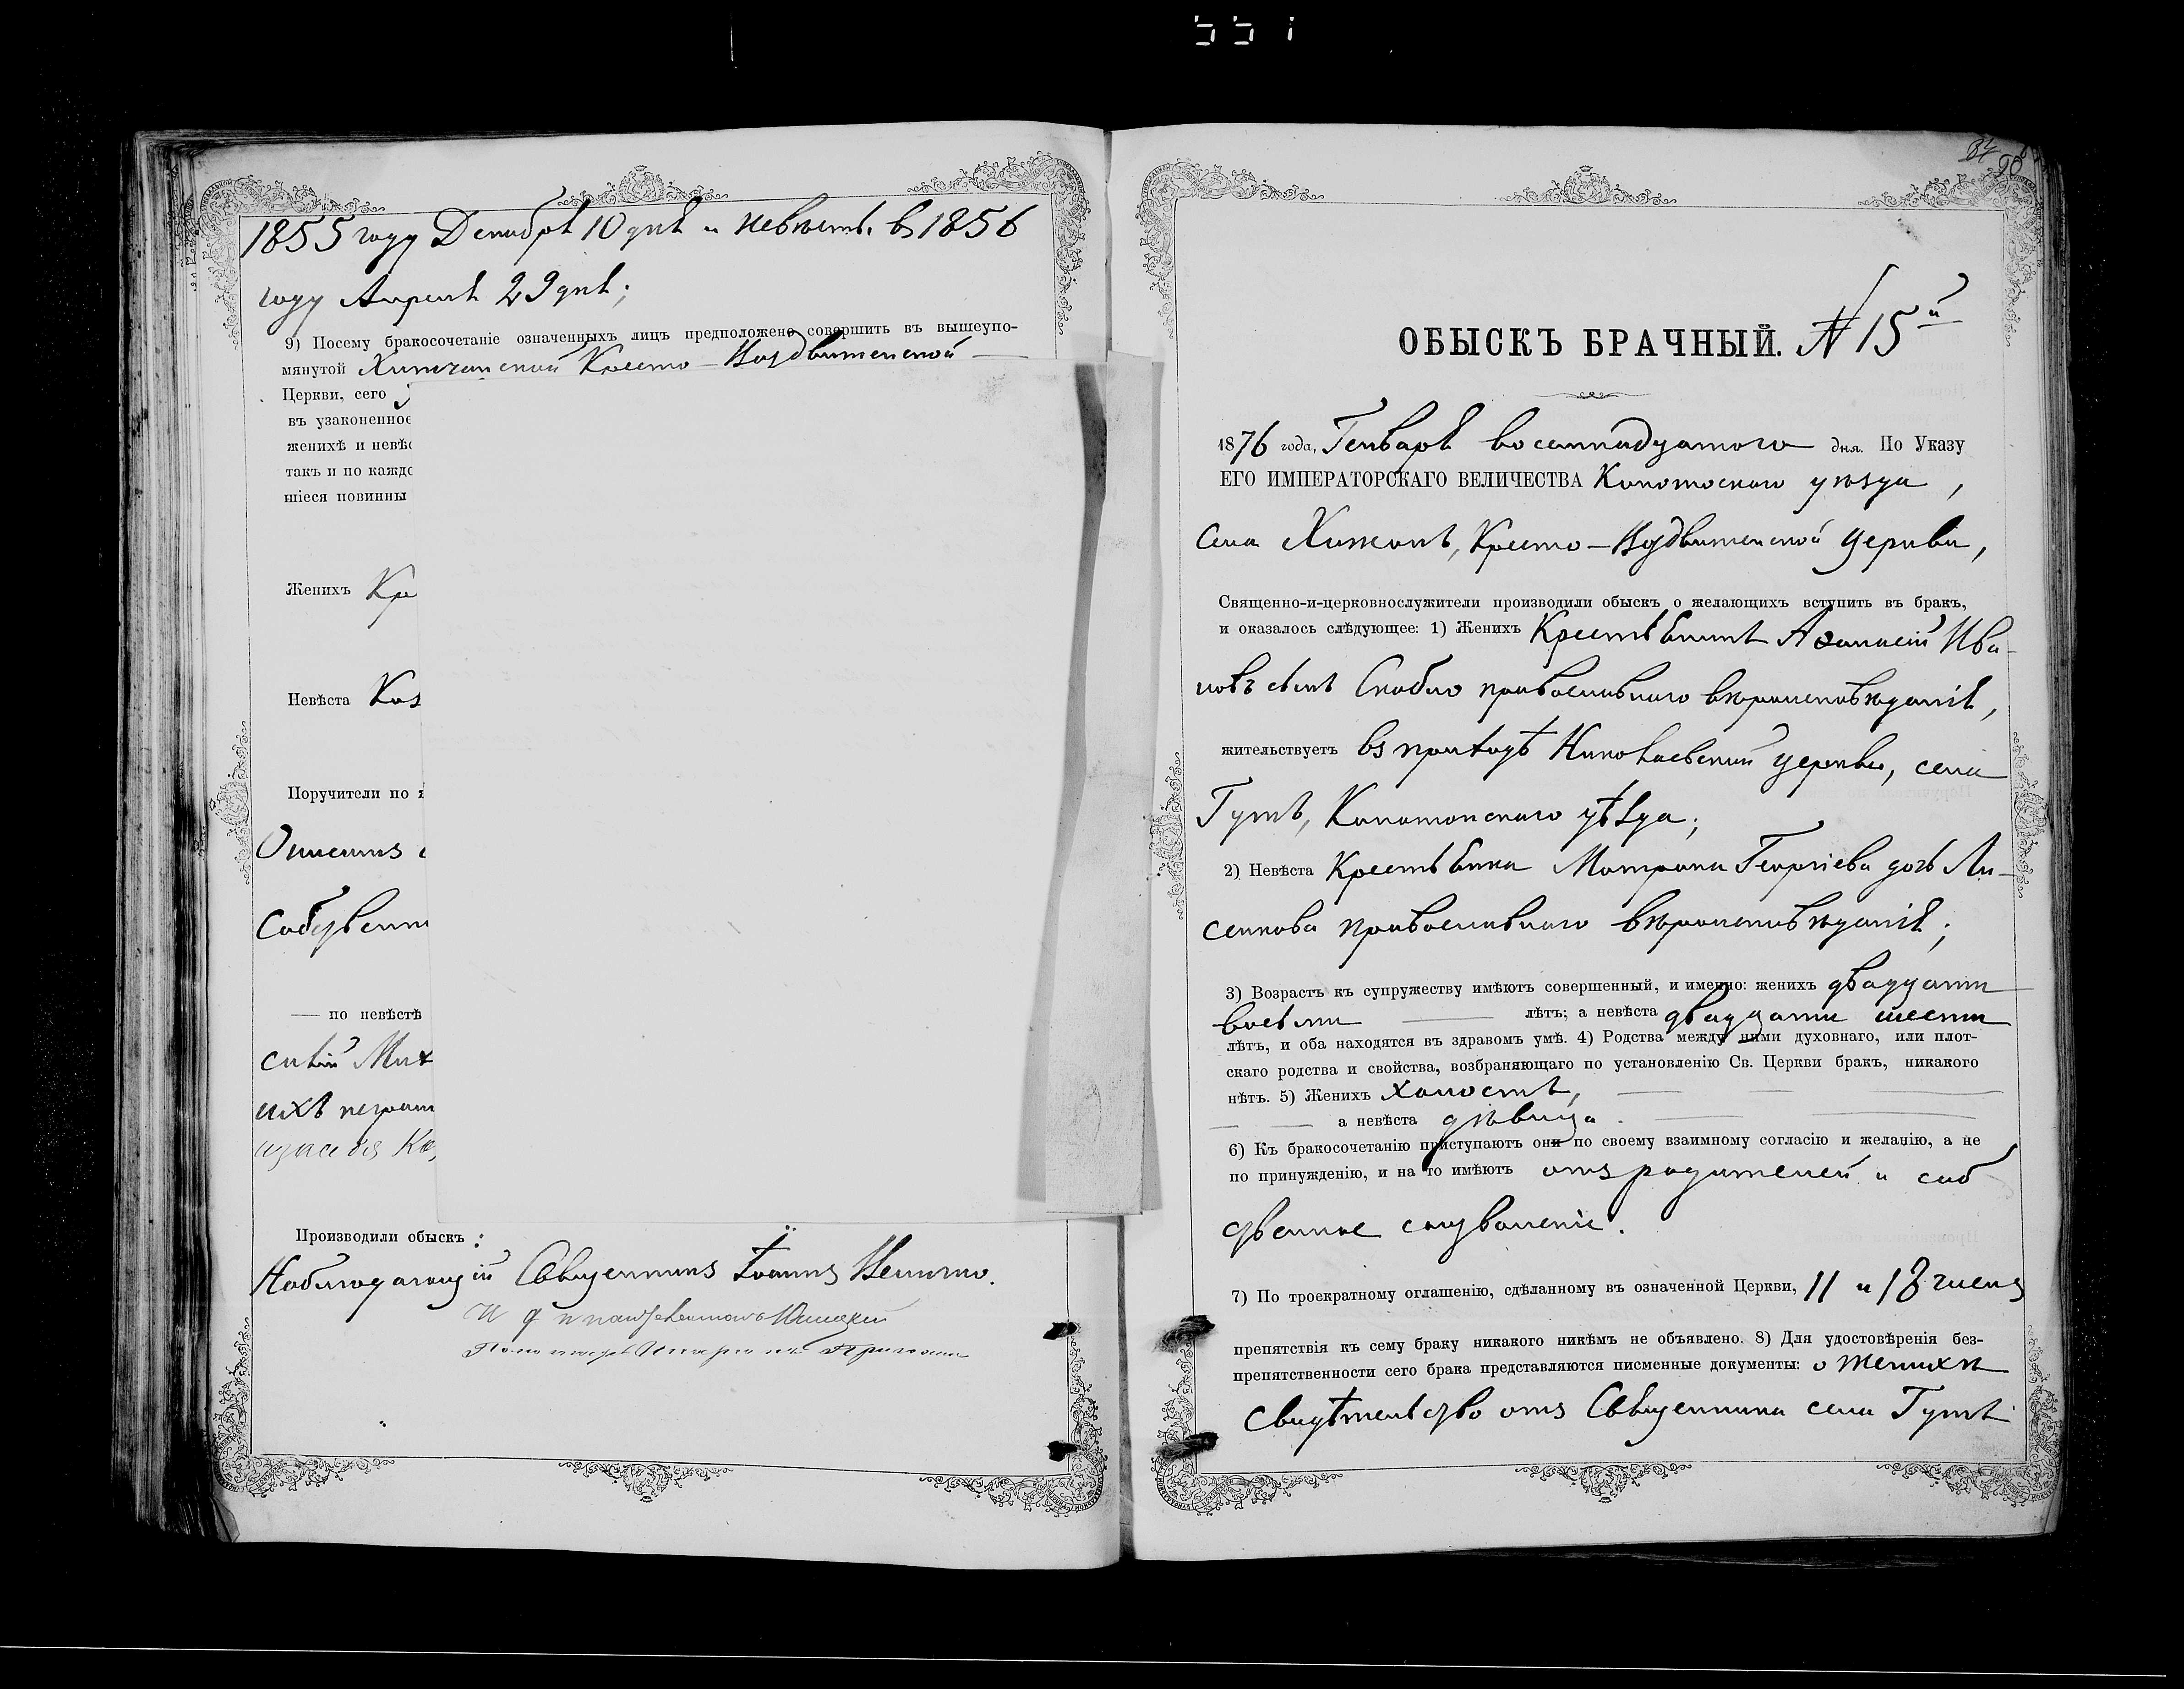 1855 году Декабря 10 дня и невѣста въ 1856
году Апреля 29 дня;
9) Посему бракосочетаніе означенныхъ лицъ предположено совершить въ вышеупо-
мянутой Кресто-Воздвиженской
Церкви, сего
въ узаконенное
женихѣ и невѣс
такъ и по каждо
шіеся повинны
Женихъ Кре
Невѣста Коз
Поручители по
Собствен
— по невѣстѣ
Мих
ихъ неграм
Производили обыскъ:
Наблюдающій Священникъ Іоаннъ
ОБЫСКЪ БРАЧНЫЙ. № 15й
1876 года, Генваря восемнадцатого дня. По Указу
ЕГО ИМПЕРАТОРСКАГО ВЕЛИЧЕСТВА Конотоского уѣзда,
села Хижокъ, Кресто-Воздвиженской Церкви,
Священно-и-церковнослужители производили обыскъ о желающихъ вступить въ бракъ,
и оказалось слѣдующее: 1) Женихъ Крестьянинъ Аѳанасій Ива-
новъ сынъ Скобло православнаго вѣроисповѣданія,
жительствуетъ въ приходѣ Николаевской церкви, села
Гутъ, Конотопского уѣзда;
2) Невѣста Крестьянка Матрона Георгіева дочь Ли-
сенкова православнаго вѣроисповѣданія;
3) Возрастъ къ супружеству имѣютъ совершенный, и именно: женихъ двадцати
восьми лѣтъ; а невѣста двадцати шести
лѣтъ, и оба находятся въ здравомъ умѣ. 4) Родства между ними духовнаго, или плот-
скаго родства и свойства, возбраняющаго по установленію Св. Церкви бракъ, никакого
нѣтъ. 5) Женихъ холостъ,
а невѣста дѣвица.
6) Къ бракосочетанію приступаютъ они по своему взаимному согласію и желанію, а не
по принужденію, и на то имѣютъ отъ родителей и соб
ственное соизволеніе.
7) По троекратному оглашенію, сдѣланному въ означенной Церкви, 11 и 18 числъ
препятствія къ сему браку никакого никѣмъ не объявлено. 8) Для удостовѣренія без-
препятственности сего брака представляются писменные документы: о женихѣ
свидѣтельство отъ Священника села Гутъ